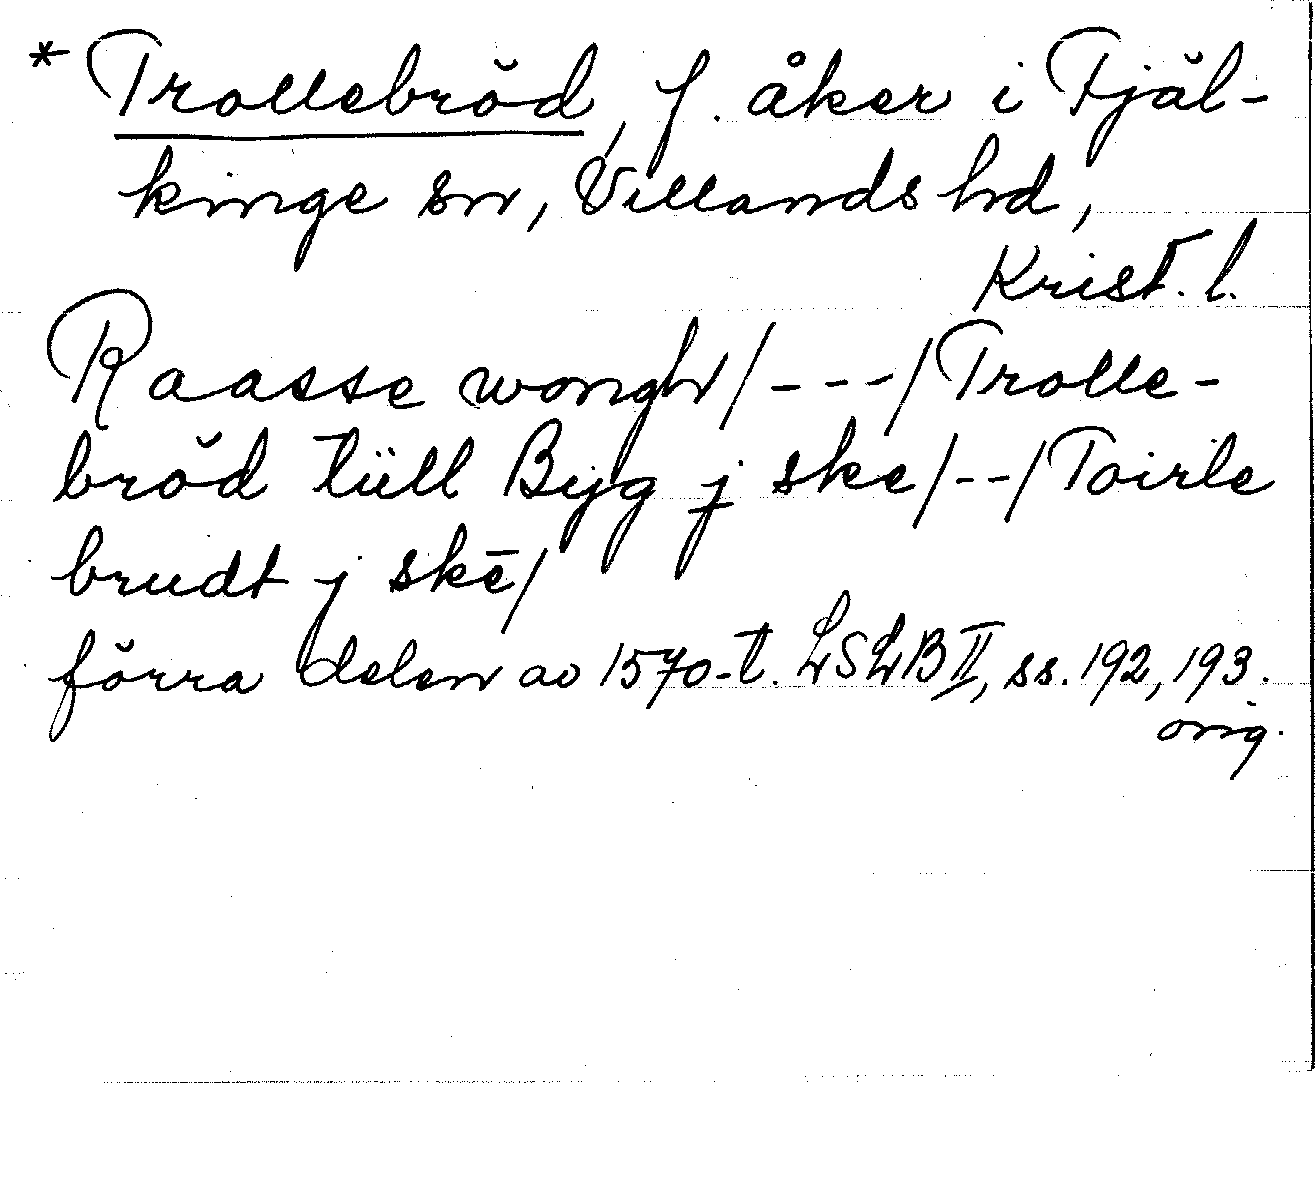 * Trollebröd, f. åker i Fjäl-
kinge sn, Villands hd,
Krist. l.
Raasse wongh/---/Trolle-
bröd tüll Bÿg j ske/--/Toirle
brudt j skē/
förra delen av 1570-t. LSLB II, ss. 192, 193.
orig.